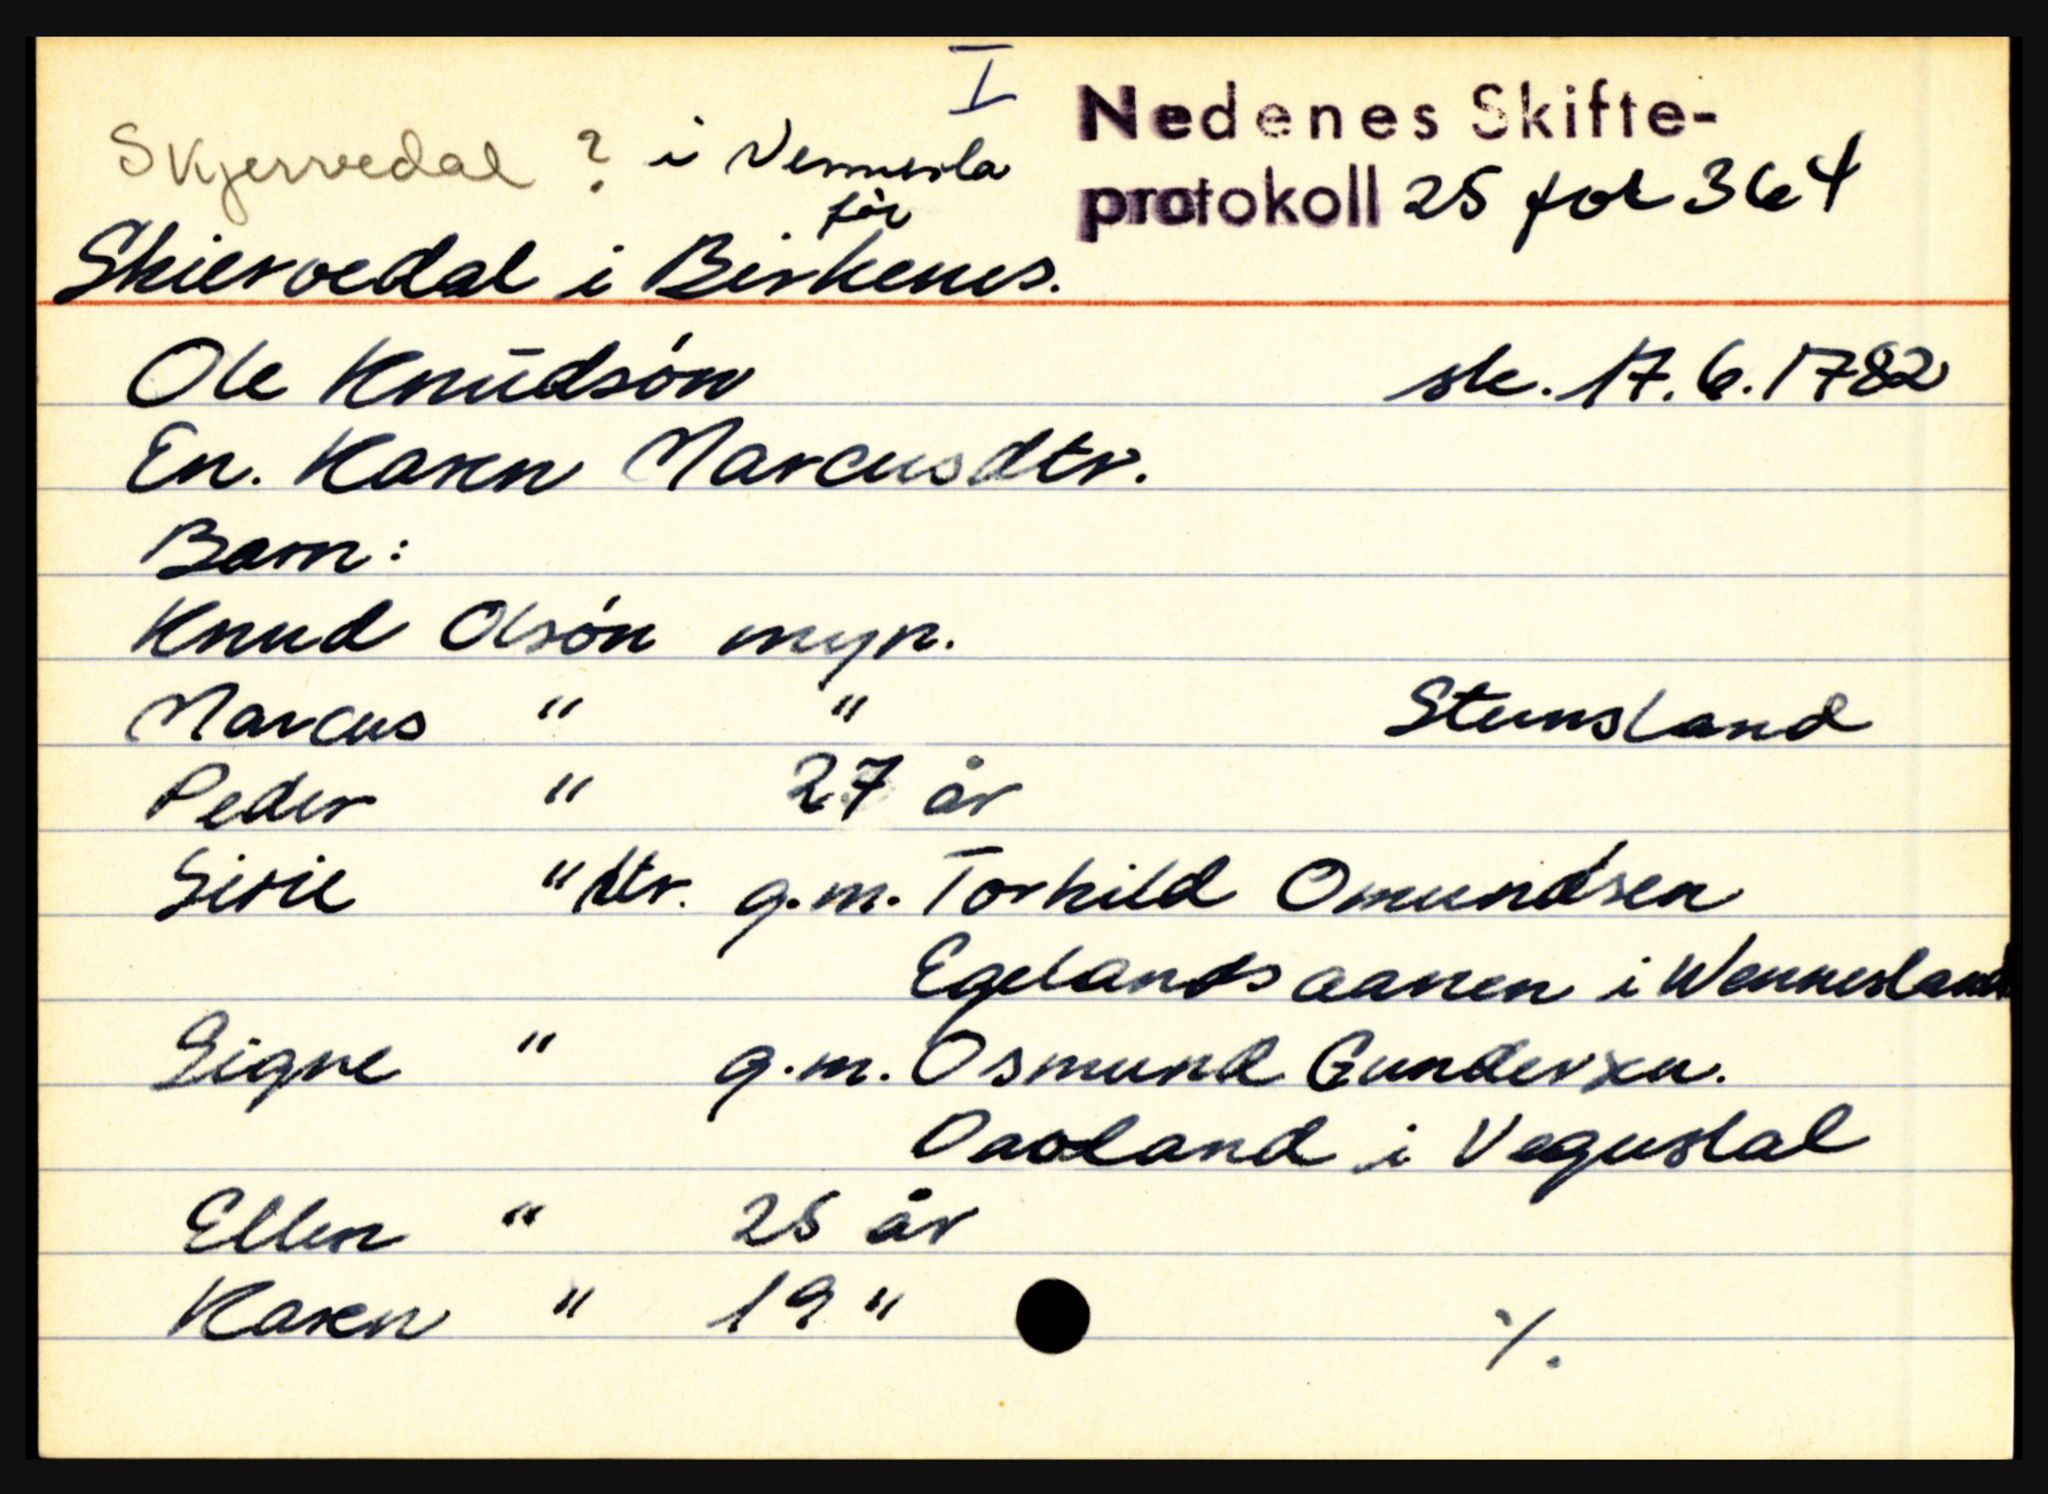 I
Nedenes Skifte-
Skjervedal ? i Vennesla
protokoll 25 fol 364
før
Skiervedal i Birkenes.
Ole Knudsøn sk. 17.6.1782
En. Karen Marcusdtr.
Barn:
Knud Olsøn myn.
Marcus " " Stensland
Peder " 27 år
Sirie " dtr. g.m. Torkild Omundsen
Egelandsaanen i Wennesland
Signe " g.m. Osmund Gundersen.
Daaland i Vegusdal
Ellen " 25 år
Karen " 19 "
·/.